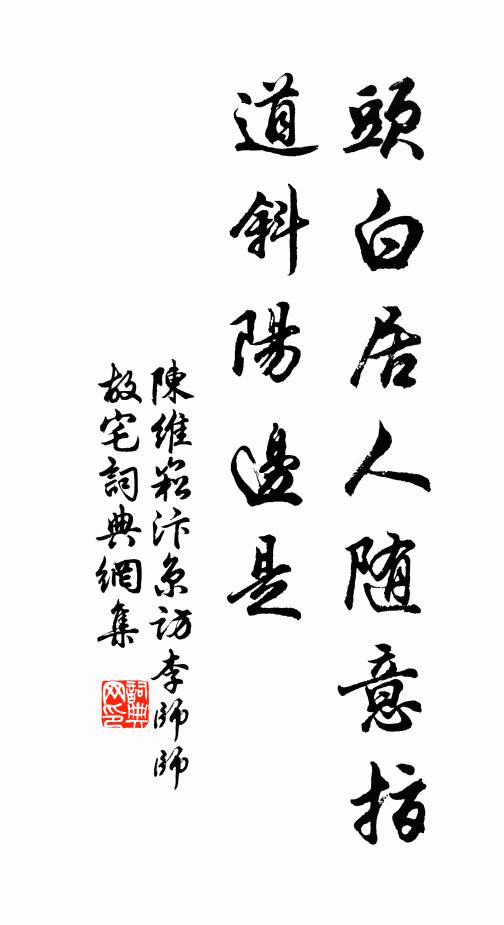 頭白居人随意指
道斜陽邊是
陳維崧汴京訪李師師
故宅詞典網集
詞典
网印